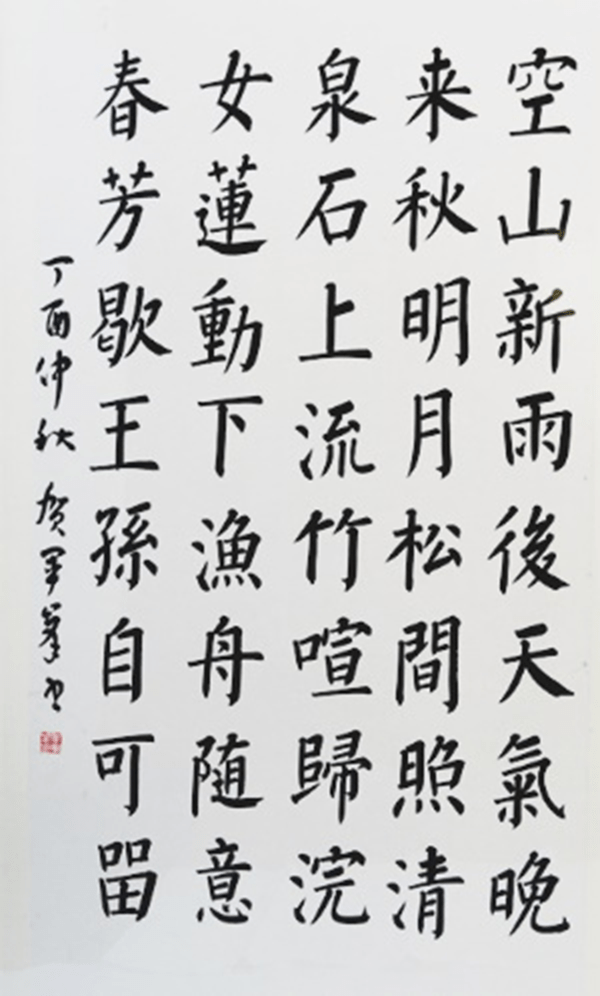 空山新雨後天氣晚
来秋明月松間照清
泉石上流竹喧歸浣
女蓮動下漁舟随意
春芳歇王孫自可留
丁酉仲秋 贺军峯书